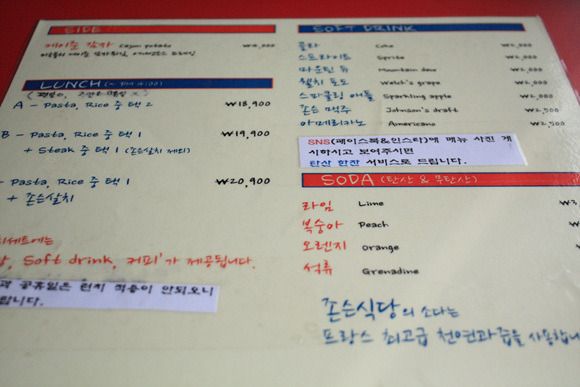 SIDE
케이준 감자 Cajun potato ₩4,000
LUNCH
A - Pasta, Rice 중 택 2 ₩18,900
B - Pasta, Rice 중 택 1 ₩19,900
+ Steak 중 택 1 (존슨살치 제외)
- Pasta, Rice 중 택 1 ₩20,900
+ 존슨살치
Soft drink, 커피'가 제공됩니다.
공휴일은 런치 적용이 안되오니
SOFT DRINK
콜라 Coke ₩2,000
스프라이트 Sprite ₩2,000
마운틴 듀 Mountain dew ₩2,000
웰치 포도 Welch's grape ₩2,000
스파클링 애플 Sparkling apple ₩2,500
존슨 맥주 Johnson's draft ₩2,500
아메리카노 Americano ₩2,500
SNS(페이스북&인스타)에 메뉴 사진 게
시하시고 보여주시면
탄산 한잔 서비스로 드립니다.
SODA (탄산 & 무탄산)
라임 Lime ₩3
복숭아 Peach ₩
오렌지 Orange ₩
석류 Grenadine
존슨식당의 소다는
프랑스 최고급 천연과즙을 사용합니